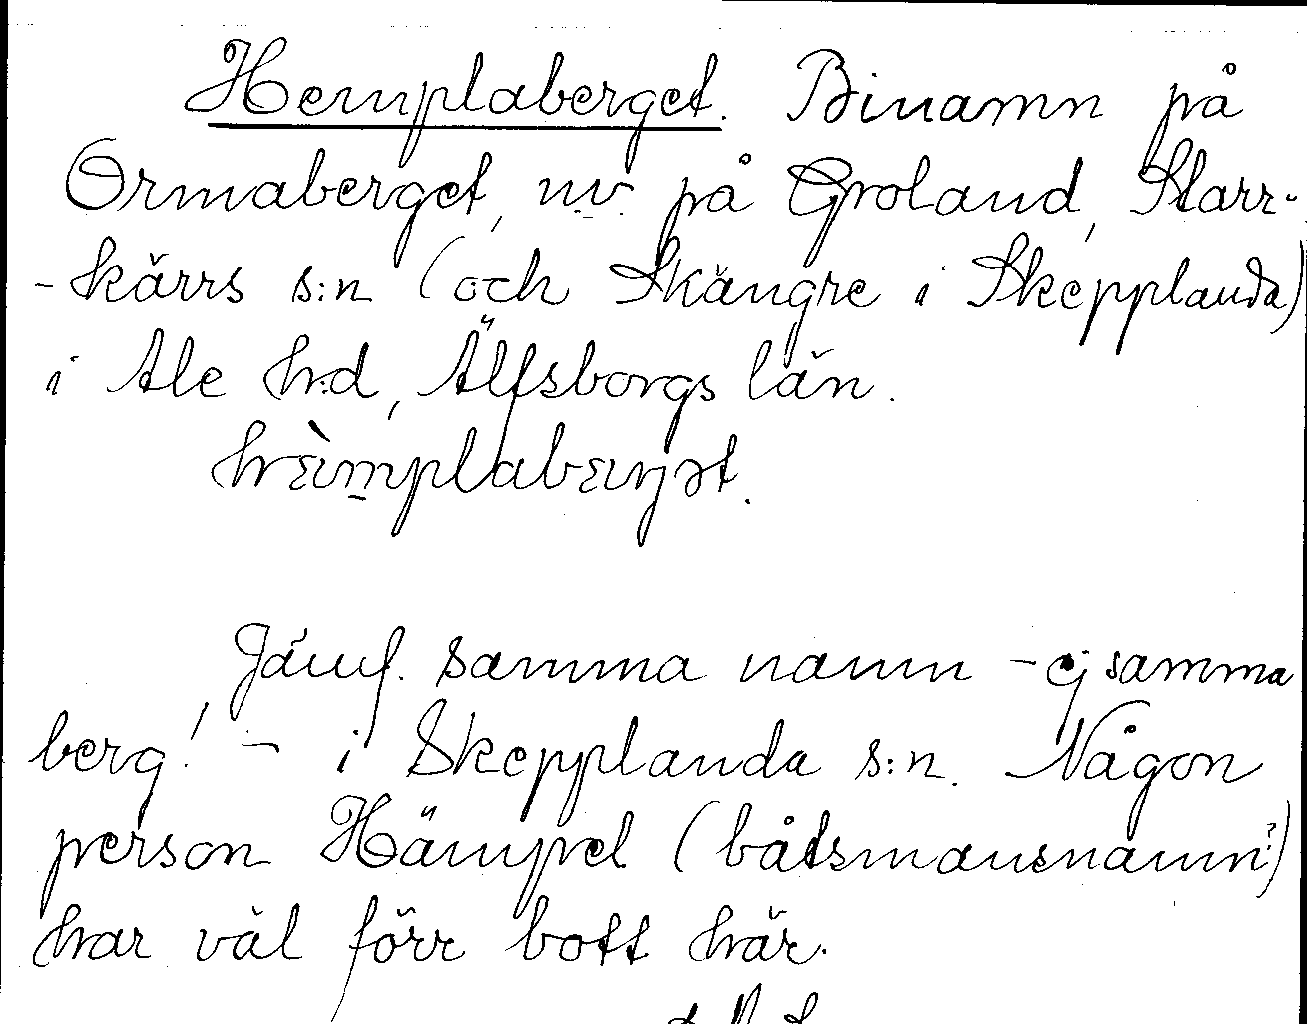 Hemplaberget. Binamn på
Ormaberget, nv. på Groland, Starr-
-kärrs s:n (och Skängre i Skepplanda)
i Ale h:d, Älfsborgs län.
Jämf. samma namn - ej samma
berg! - i Skepplanda s:n. Någon
person Hämpel (båtsmansnamn?)
har väl förr bott här.